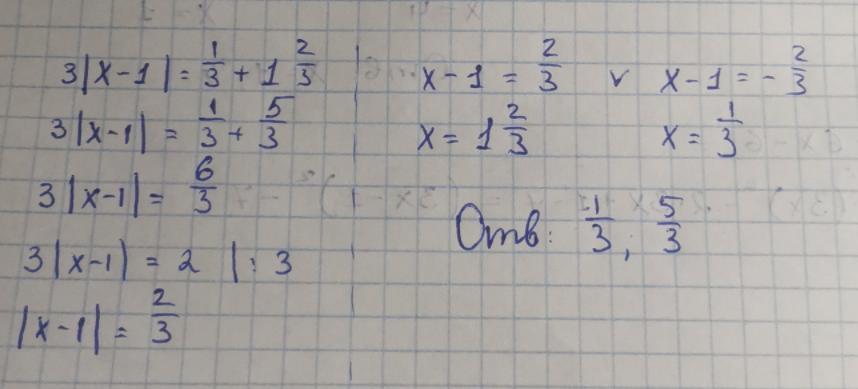 3|x-1| = 1/3 + 1 2/3
3|x-1| = 1/3 + 5/3
3|x-1| = 6/3
3|x-1| = 2 |: 3
|x-1| = 2/3
x-1 = 2/3 v x-1 = - 2/3
x = 1 2/3 x = 1/3
Отв: 1/3; 5/3